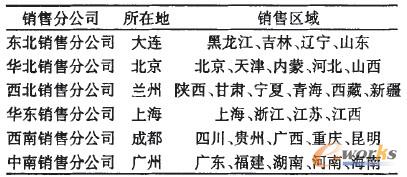 销售分公司 所在地 销售区域
东北销售分公司 大连 黑龙江、吉林、辽宁、山东
华北销售分公司 北京 北京、天津、内蒙、河北、山西
西北销售分公司 兰州 陕西、甘肃、宁夏、青海、西藏、新疆
华东销售分公司 上海 上海、浙江、江苏、江西
西南销售分公司 成都 四川、贵州、广西、重庆、昆明
中南销售分公司 广州 广东、福建、湖南、河南、海南
e-works